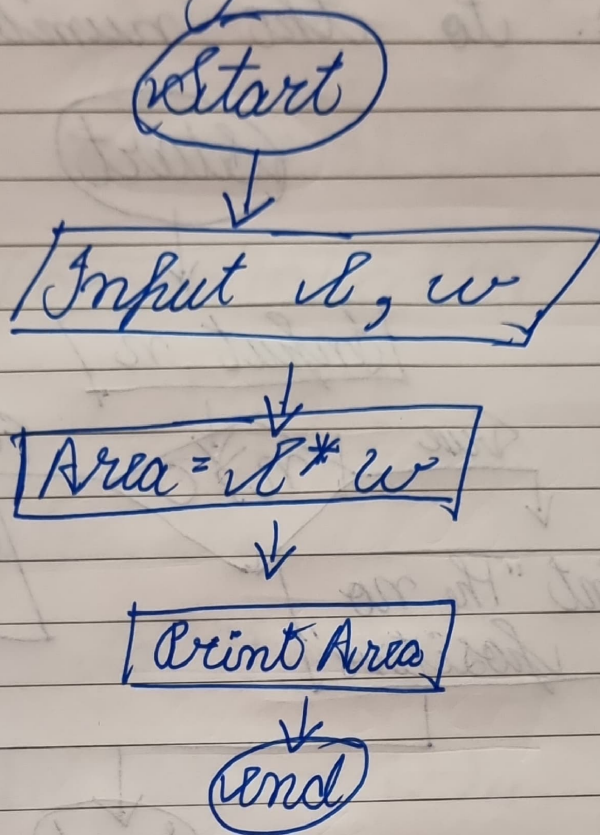 Start
Input l, w
Area = l * w
Print Area
end